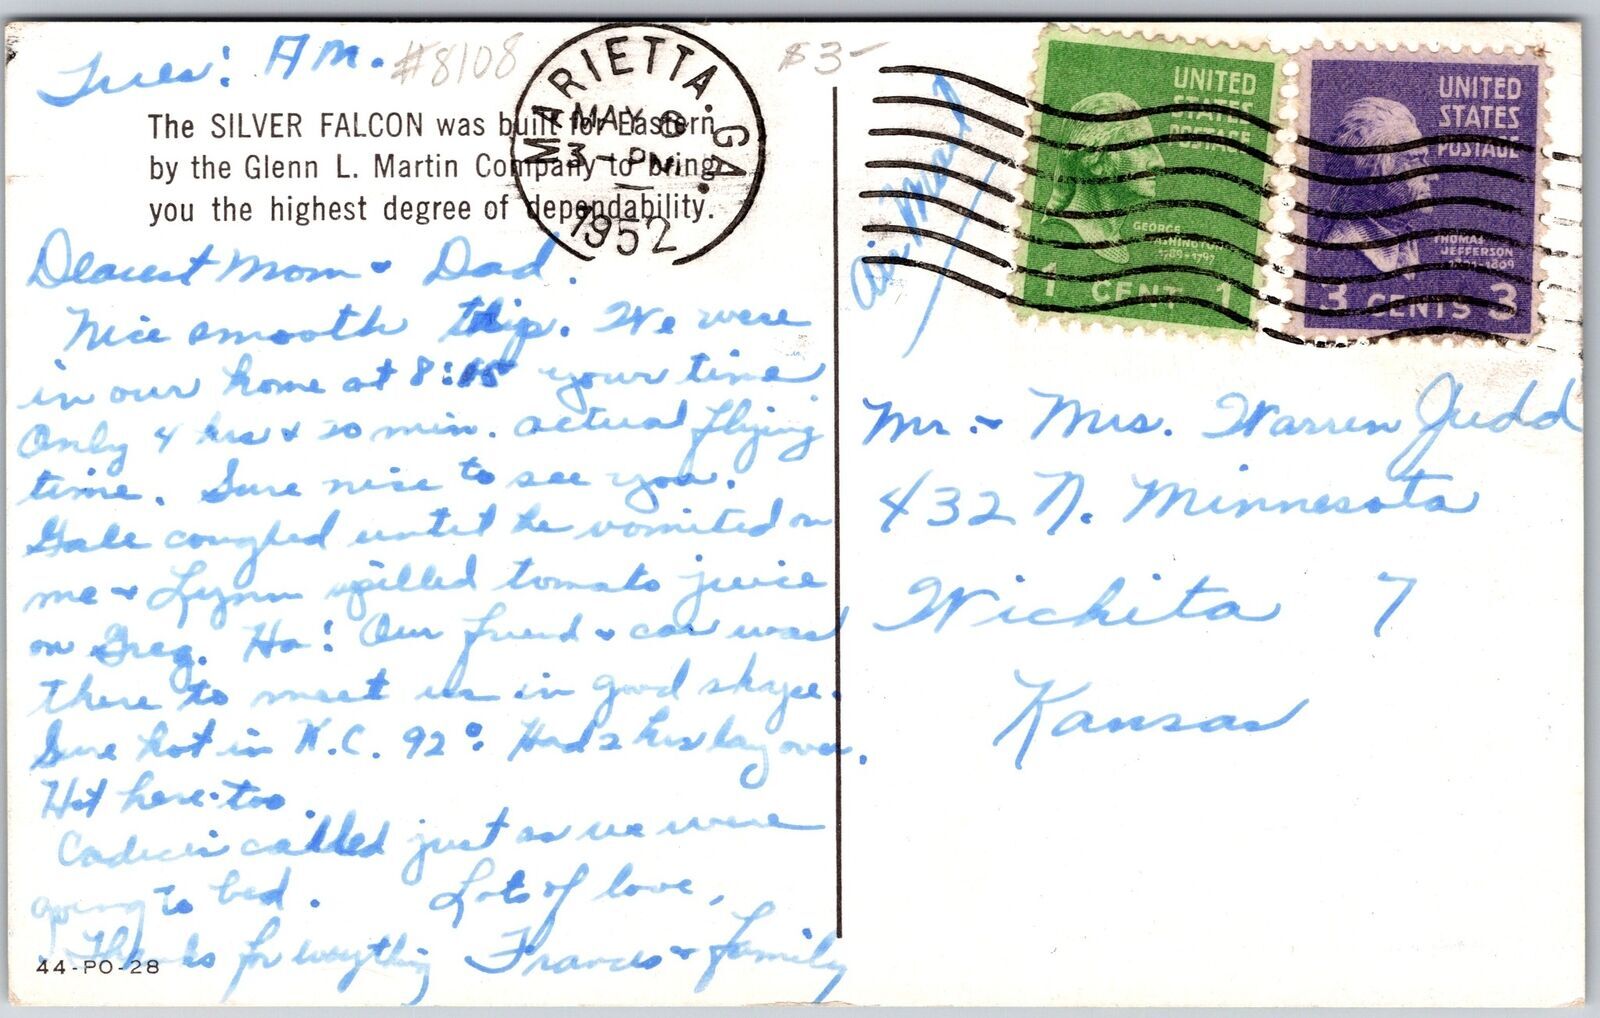 Tues: AM.
#8108
$3-
The SILVER FALCON was built for Eastern
by the Glenn L. Martin Company to bring
you the highest degree of dependability.
MARIETTA. GA.
MAY 6
3 - PM
1952
Dearest Mom & Dad.
Nice smooth trip. We were
in our home at 8:15 your time
Only 4 hrs & 20 min. actual flying
time. Sure nice to see you.
Gale coughed until he vomited on
me & Lynn spilled tomato juice
on Greg. Ha! Our friend & car was
there to meet us in good shape.
Sure hot in K.C. 92°. Had 2 hrs lay over.
Hot here-too.
called just as we were
going to bed. Lots of love,
Thanks for everything Frances & family
44-PO-28
Air Mail
UNITED
STATES
POSTAGE
GEORGE
WASHINGTON
1789-1797
1 CENT 1
UNITED
STATES
POSTAGE
THOMAS
JEFFERSON
1801-1809
3 CENTS 3
Mr. & Mrs. Warren Judd
432 N. Minnesota
Wichita 7
Kansas